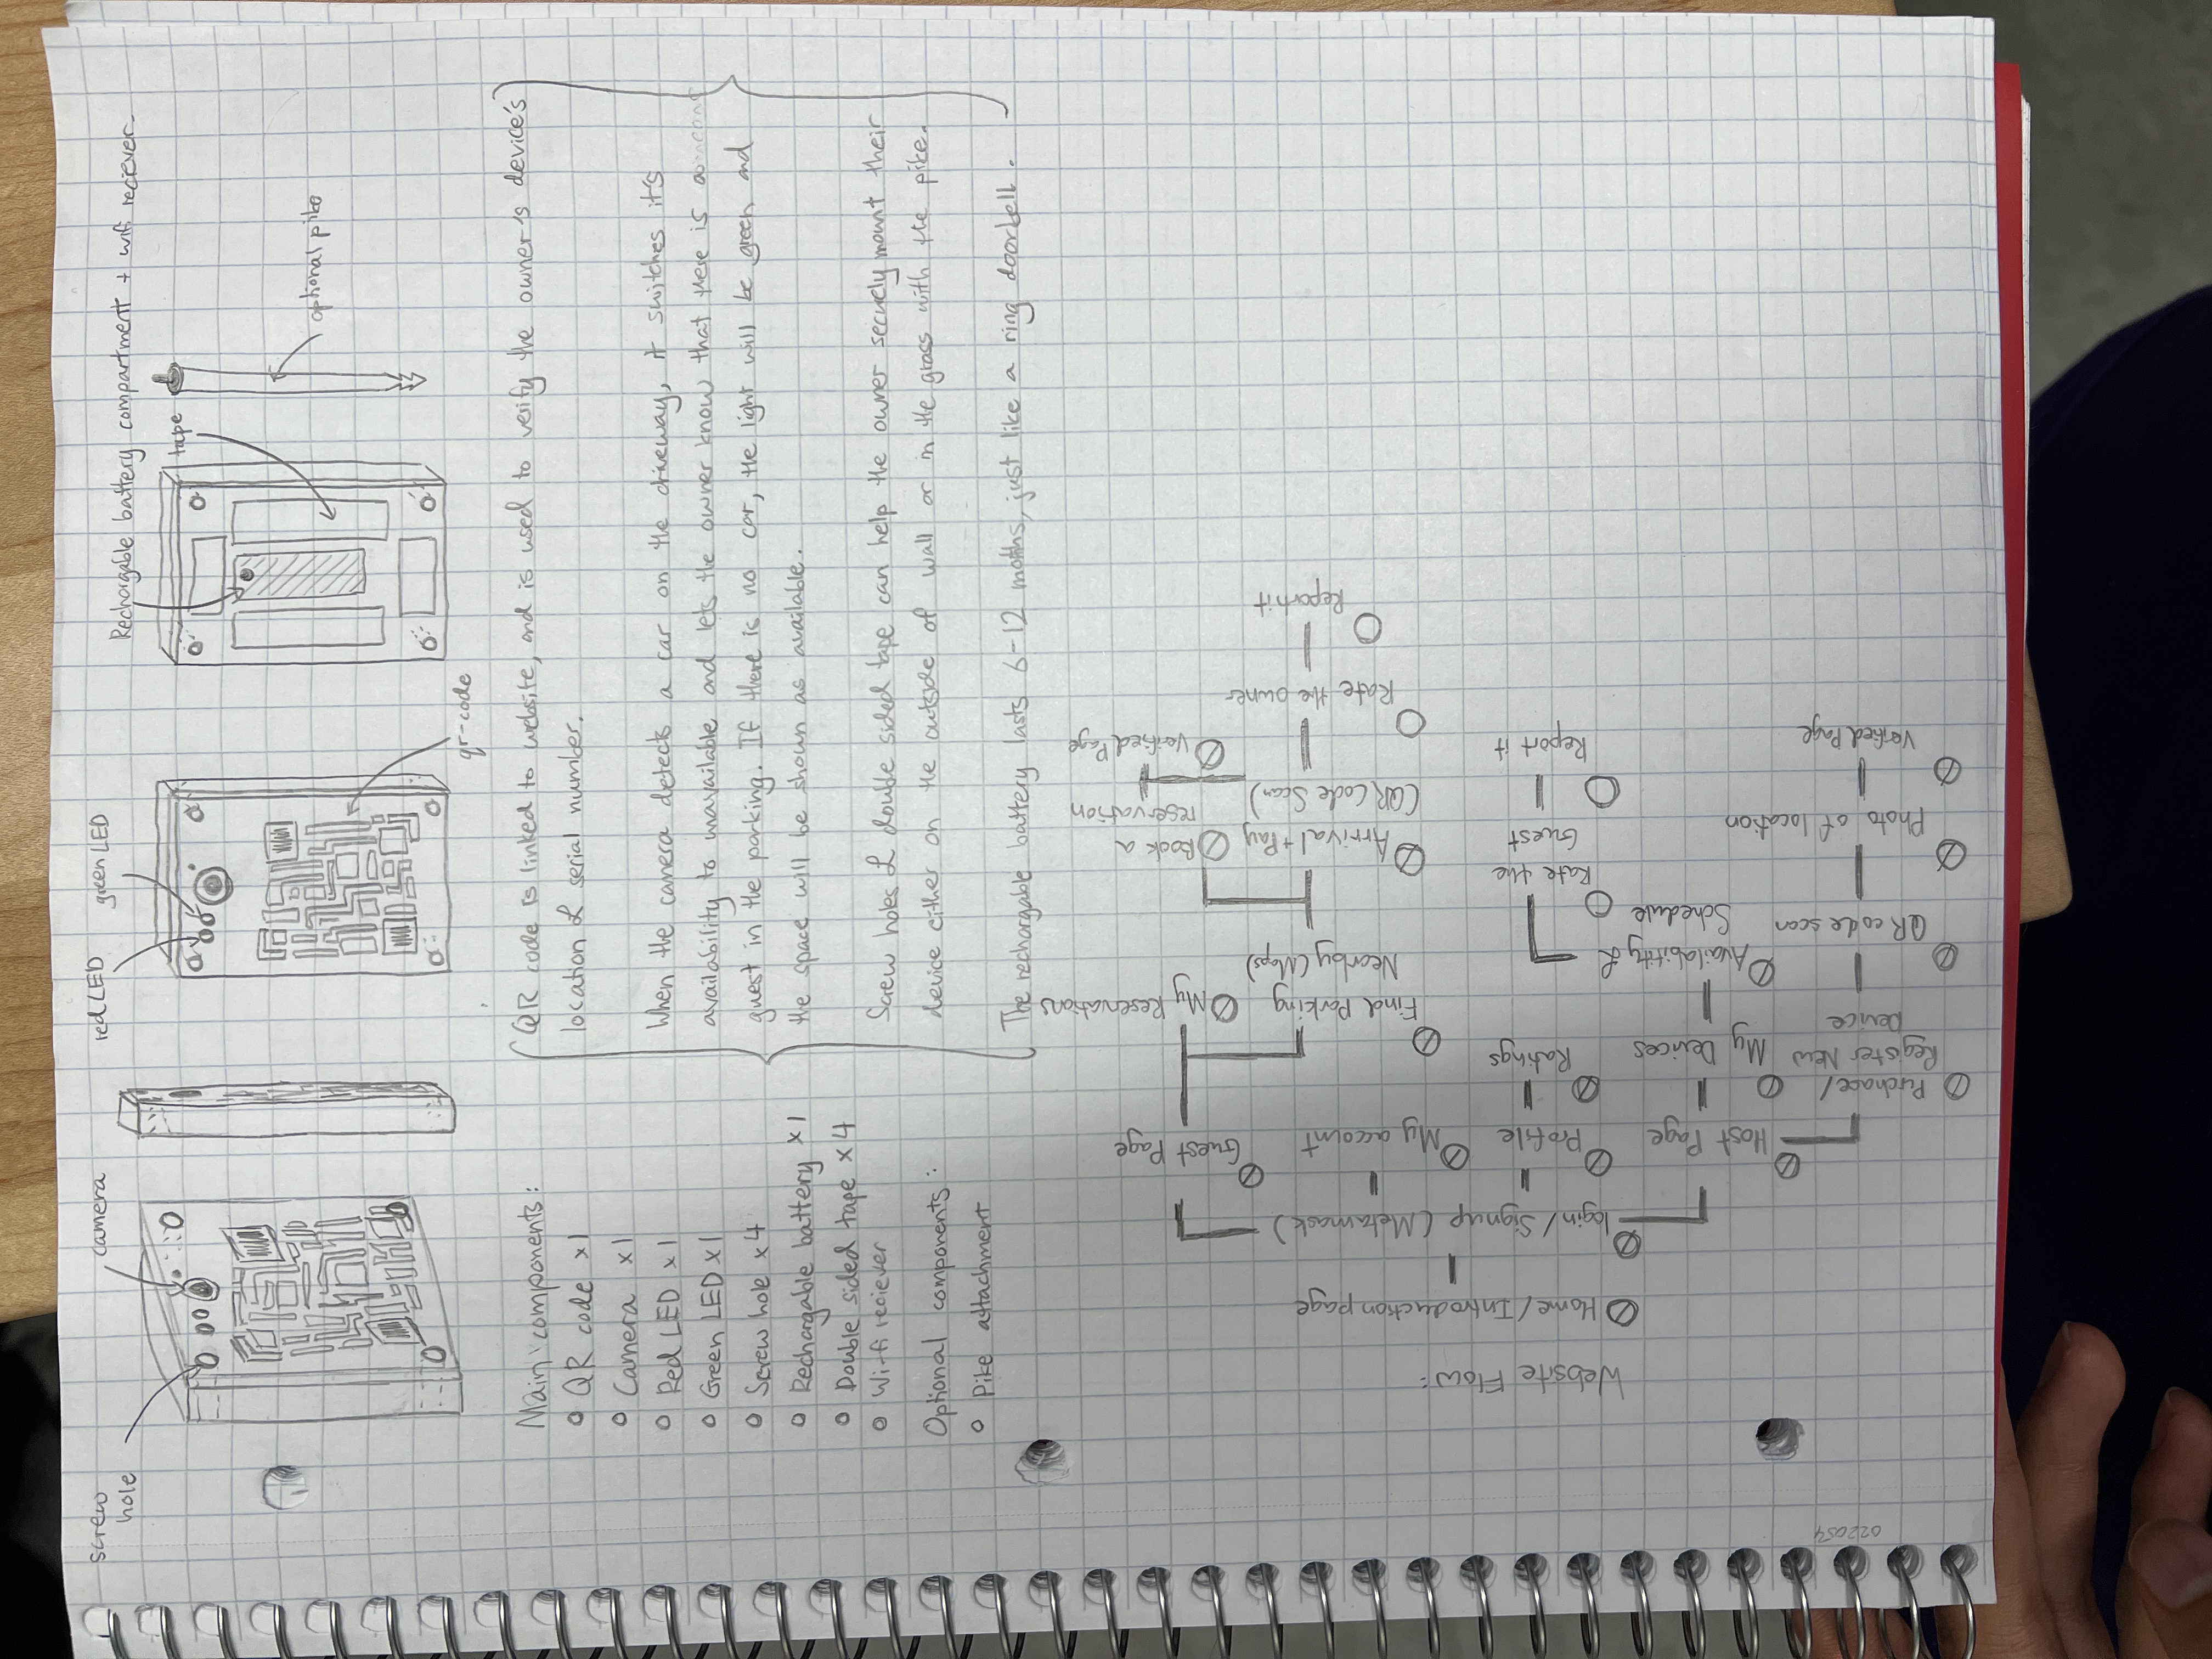 screw
hole
camera
red LED
green LED
qr-code
Rechargable battery compartment + wifi reciever
tape
optional pike
Main components:
o QR code x1
o Camera x1
o Red LED x1
o Green LED x1
o Screw hole x4
o Rechargable battery x1
o Double sided tape x4
o Wi-fi reciever
Optional components:
o Pike attachment
QR code is linked to website, and is used to verify the owner's device's
location & serial number.
When the camera detects a car on the driveway, it switches it's
availability to unavailable and lets the owner know that there is a
guest in the parking. If there is no car, the light will be green and
the space will be shown as available.
Screw holes & double sided tape can help the owner securely mount their
device either on the outside of wall or in the grass with the pike.
The rechargable battery lasts 6-12 moths, just like a ring doorbell.
Website Flow:
Home/Introduction page
login/Signup (Metamask)
Host Page
Purchase/
Register New
Device
QR code scan
Photo of location
Verified Page
My Devices
Availability &
Schedule
Rate the
Guest
Report it
Profile
Ratings
My account
Guest Page
Find Parking
Nearby (Maps)
Arrival + Pay
(QR Code Scan)
Rate the owner
Report it
My Reservations
Book a
reservation
Verified Page
022054